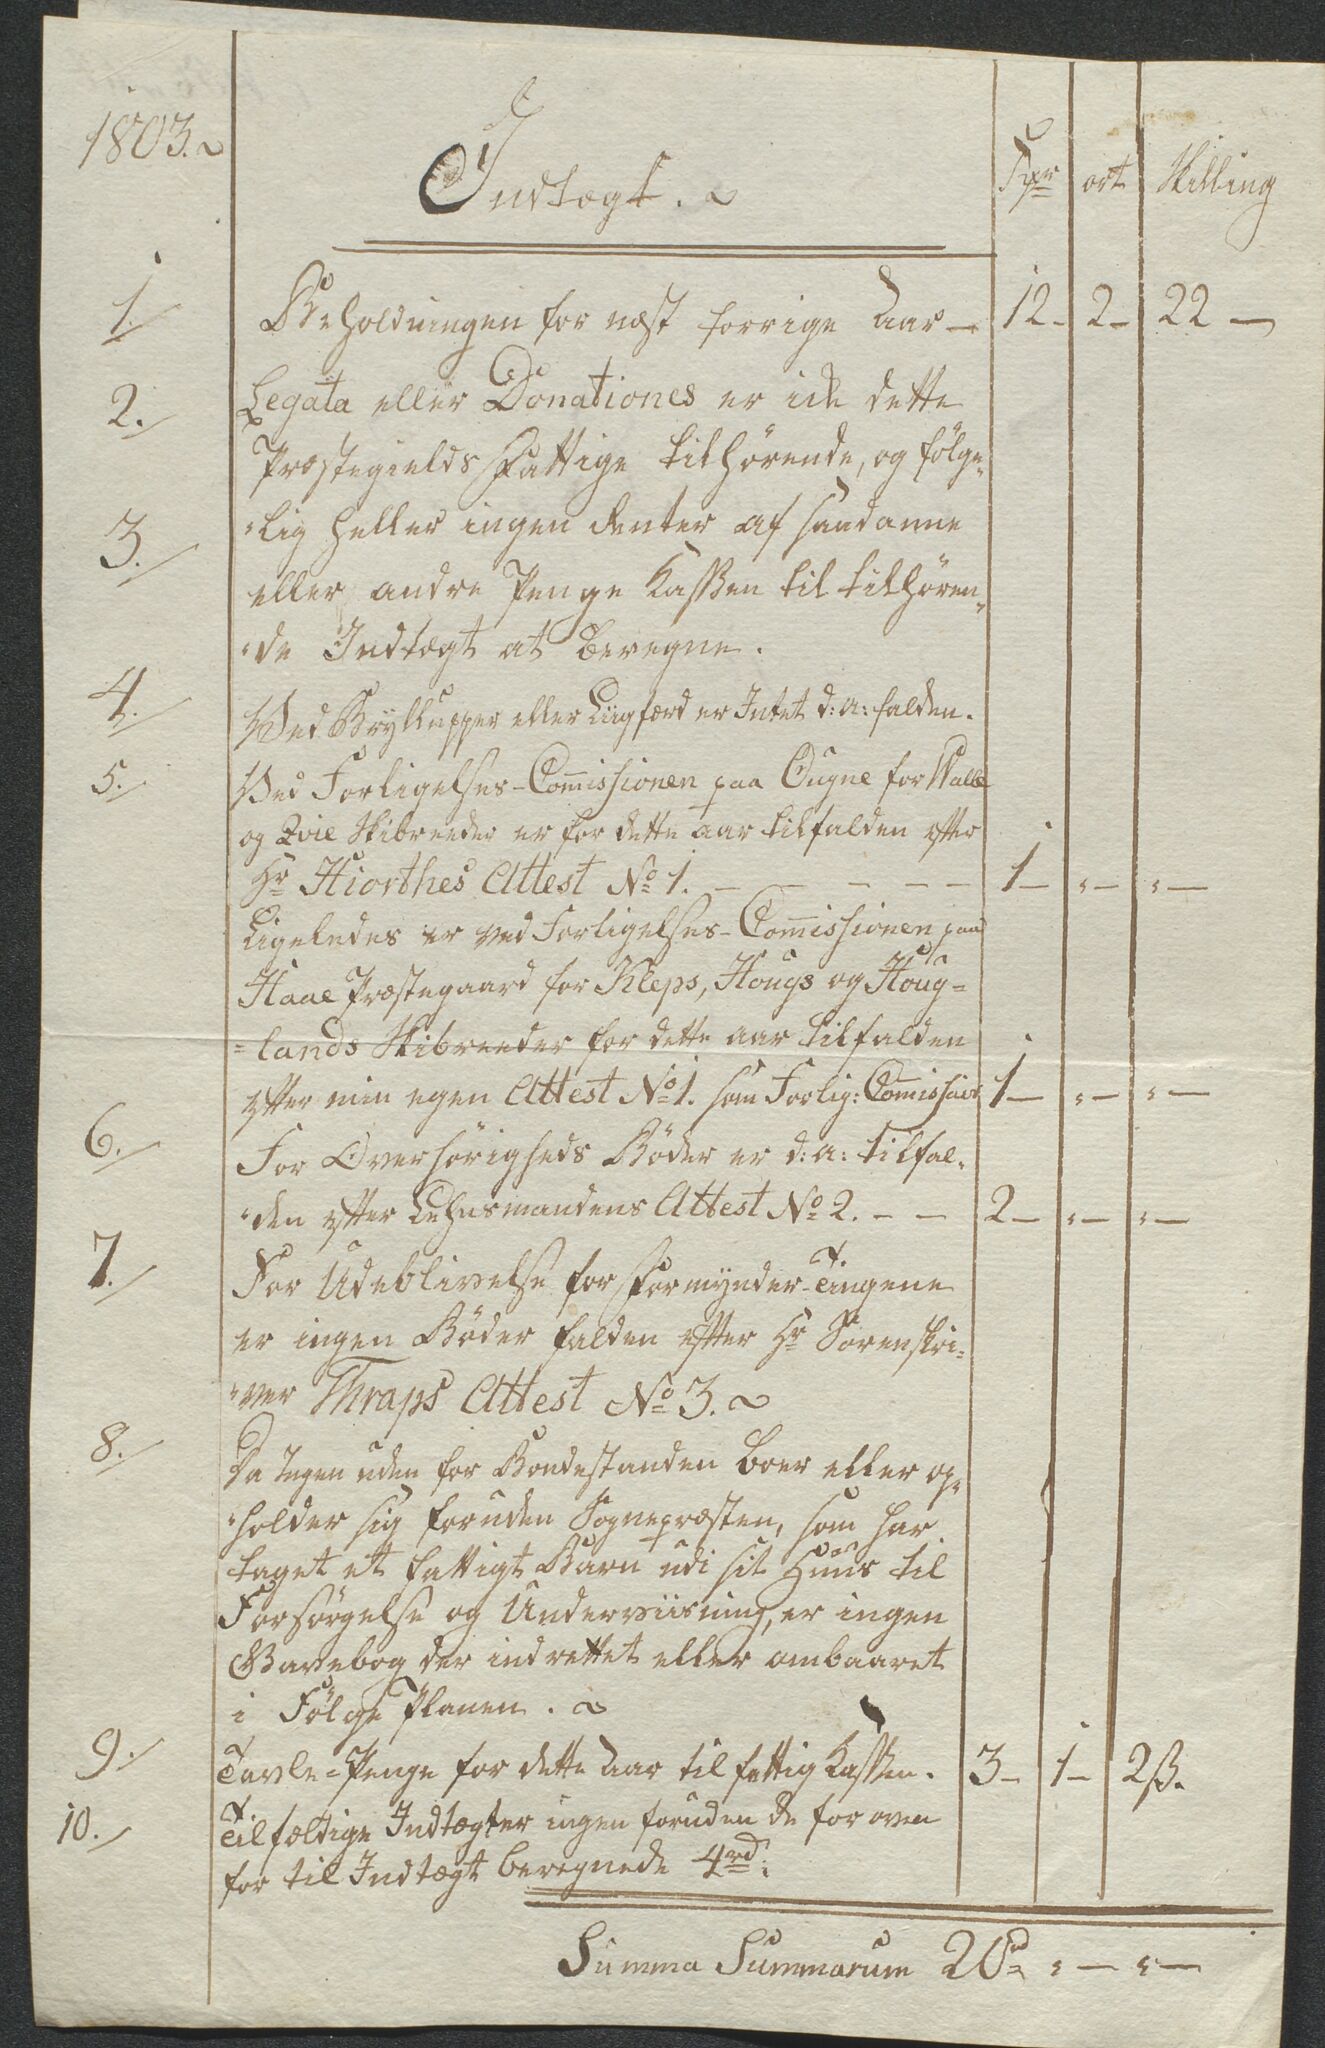 1803.
Indtægt. Rdr ort Skilling
1. Beholdningen for næst forrige Aar – 12 – 2 – 22 –
2. Legata eller Donationes er icke dette
Præstegields Fattige tilhørende, og følge-
3. -lig heller ingen Renter af saadanne
eller andre Penge Kassen til tilhøren-
-de Indtægt at beregne.
4. Ved Bryllupper eller Liigfærd er Intet d: a: falden.
5. Ved Forligelses-Commissionen paa Ougne for Walle
og Qvie Skibreeder er for dette aar tilfalden efter
Hr Hiorthes Attest No 1. – – – – – 1 – " – " –
Ligeledes er ved Forligelses-Commissionen paa
Haae Præstegaard for Kleps, Hougs og Houg=
=lands Skibreeder for dette aar tilfalden
efter min egen Attest No 1. som Forlig: Commissair 1 – " – " –
6. For Overhørigheds Bøder er d: a: tilfal-
-den efter Lehnsmandens Attest No 2. – – 2 – " – " –
7. For Udeblivelse for Formynder-Tingene
er ingen Bøder falden efter Hr Sorenskri-
-ver Thraps Attest No 3.
8. Da Ingen uden for Bondestanden boer eller op-
-holder sig foruden Sognepræsten, som har
taget et fattigt Barn udi sit Huus til
Forsørgelse og Underviisning, er ingen
Gavebog der indrettet eller ombaaret
i Følge Planen.
9. Tavle-Penge for dette Aar til fattig Kassen. 3 – 1 – 2 ß.
10. Tilfældige Indtægter ingen foruden de for oven
for til Indtægt beregnede 4 rd:
Summa Summarum 20 rd " – " –